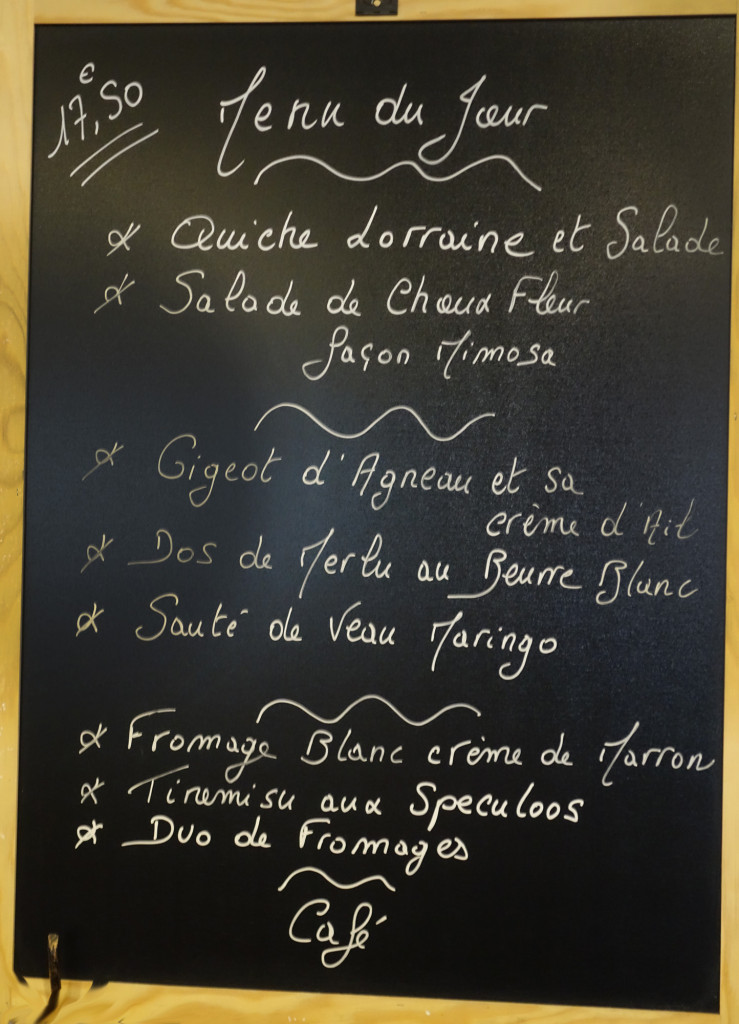 17,50 €
Menu du Jour
Quiche Lorraine et Salade
Salade de Choux Fleur
façon Mimosa
Gigeot d'Agneau et sa
crème d'Ail
Dos de Merlu au Beurre Blanc
Sauté de Veau Maringo
Fromage Blanc crème de Marron
Tiremisu aux Speculoos
Duo de Fromages
Café